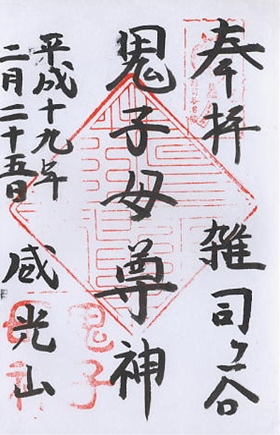 奉拝 雑司ヶ谷
鬼子母尊神
平成十九年
二月二十五日 威光山